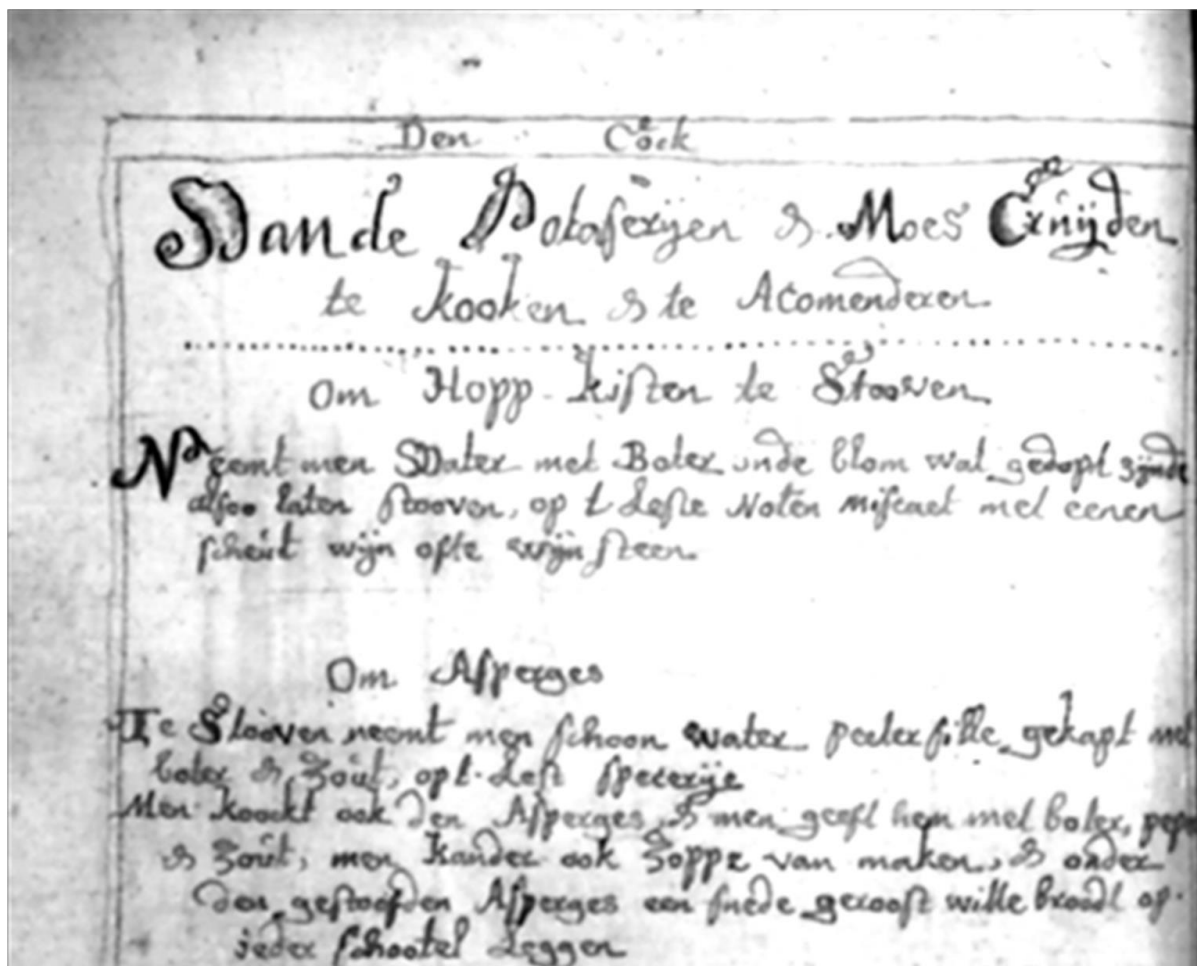 Den Cock
Van de Potaserijen & Moes Crúijden
te kooken & te Acomenderen
Om Hopp kisten te Stooven
Neemt men Water met Boter ende blom wat gedopt sijnde
alsoo laten stooven, op t Leste Noten miscaet met eenen
scheút wijn ofte wijn steen
Om Asperges
Te Stooven neemt men schoon water peeter sille gekapt met
boter & Zoút, op t Lest specerije
Men koockt ook den Asperges, & men geeft hem met boter, pep
& Zoút, men kander ook Zoppe van maken, & onder
den gestoofden Asperges een snede geroost witte broodt op
ieder schootel Leggen